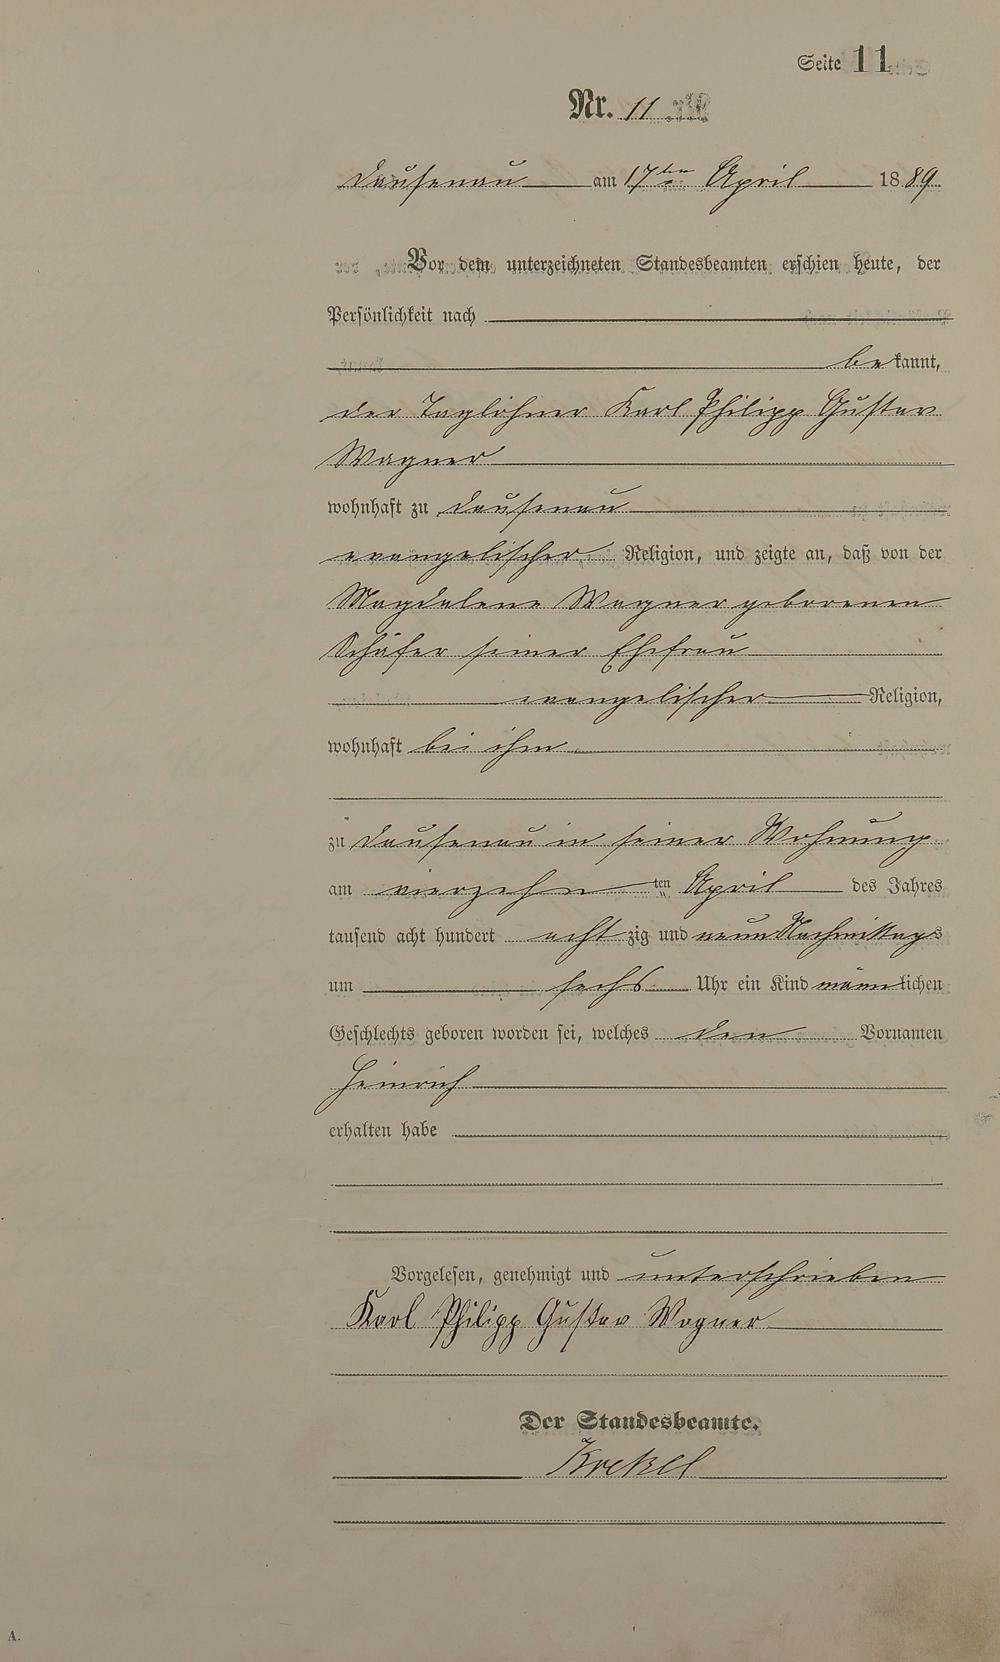 Seite 11
Nr. 11
Dausenau am 17ten April 1889.
Vor dem unterzeichneten Standesbeamten erschien heute, der
Persönlichkeit nach
bekannt,
der Taglöhner Karl Philipp Gustav
Wagner
wohnhaft zu Dausenau
evangelischer Religion, und zeigte an, daß von der
Magdalene Wagner geborenen
Schäfer seiner Ehefrau
evangelischer Religion,
wohnhaft bei ihm
zu Dausenau in seiner Wohnung
am vierzehn ten April des Jahres
tausend acht hundert achtzig und neun Nachmittags
um sechs Uhr ein Kind männlichen
Geschlechts geboren worden sei, welches den Vornamen
Heinrich
erhalten habe
Vorgelesen, genehmigt und unterschrieben
Karl Philipp Gustav Wagner
Der Standesbeamte.
Krekel
A.